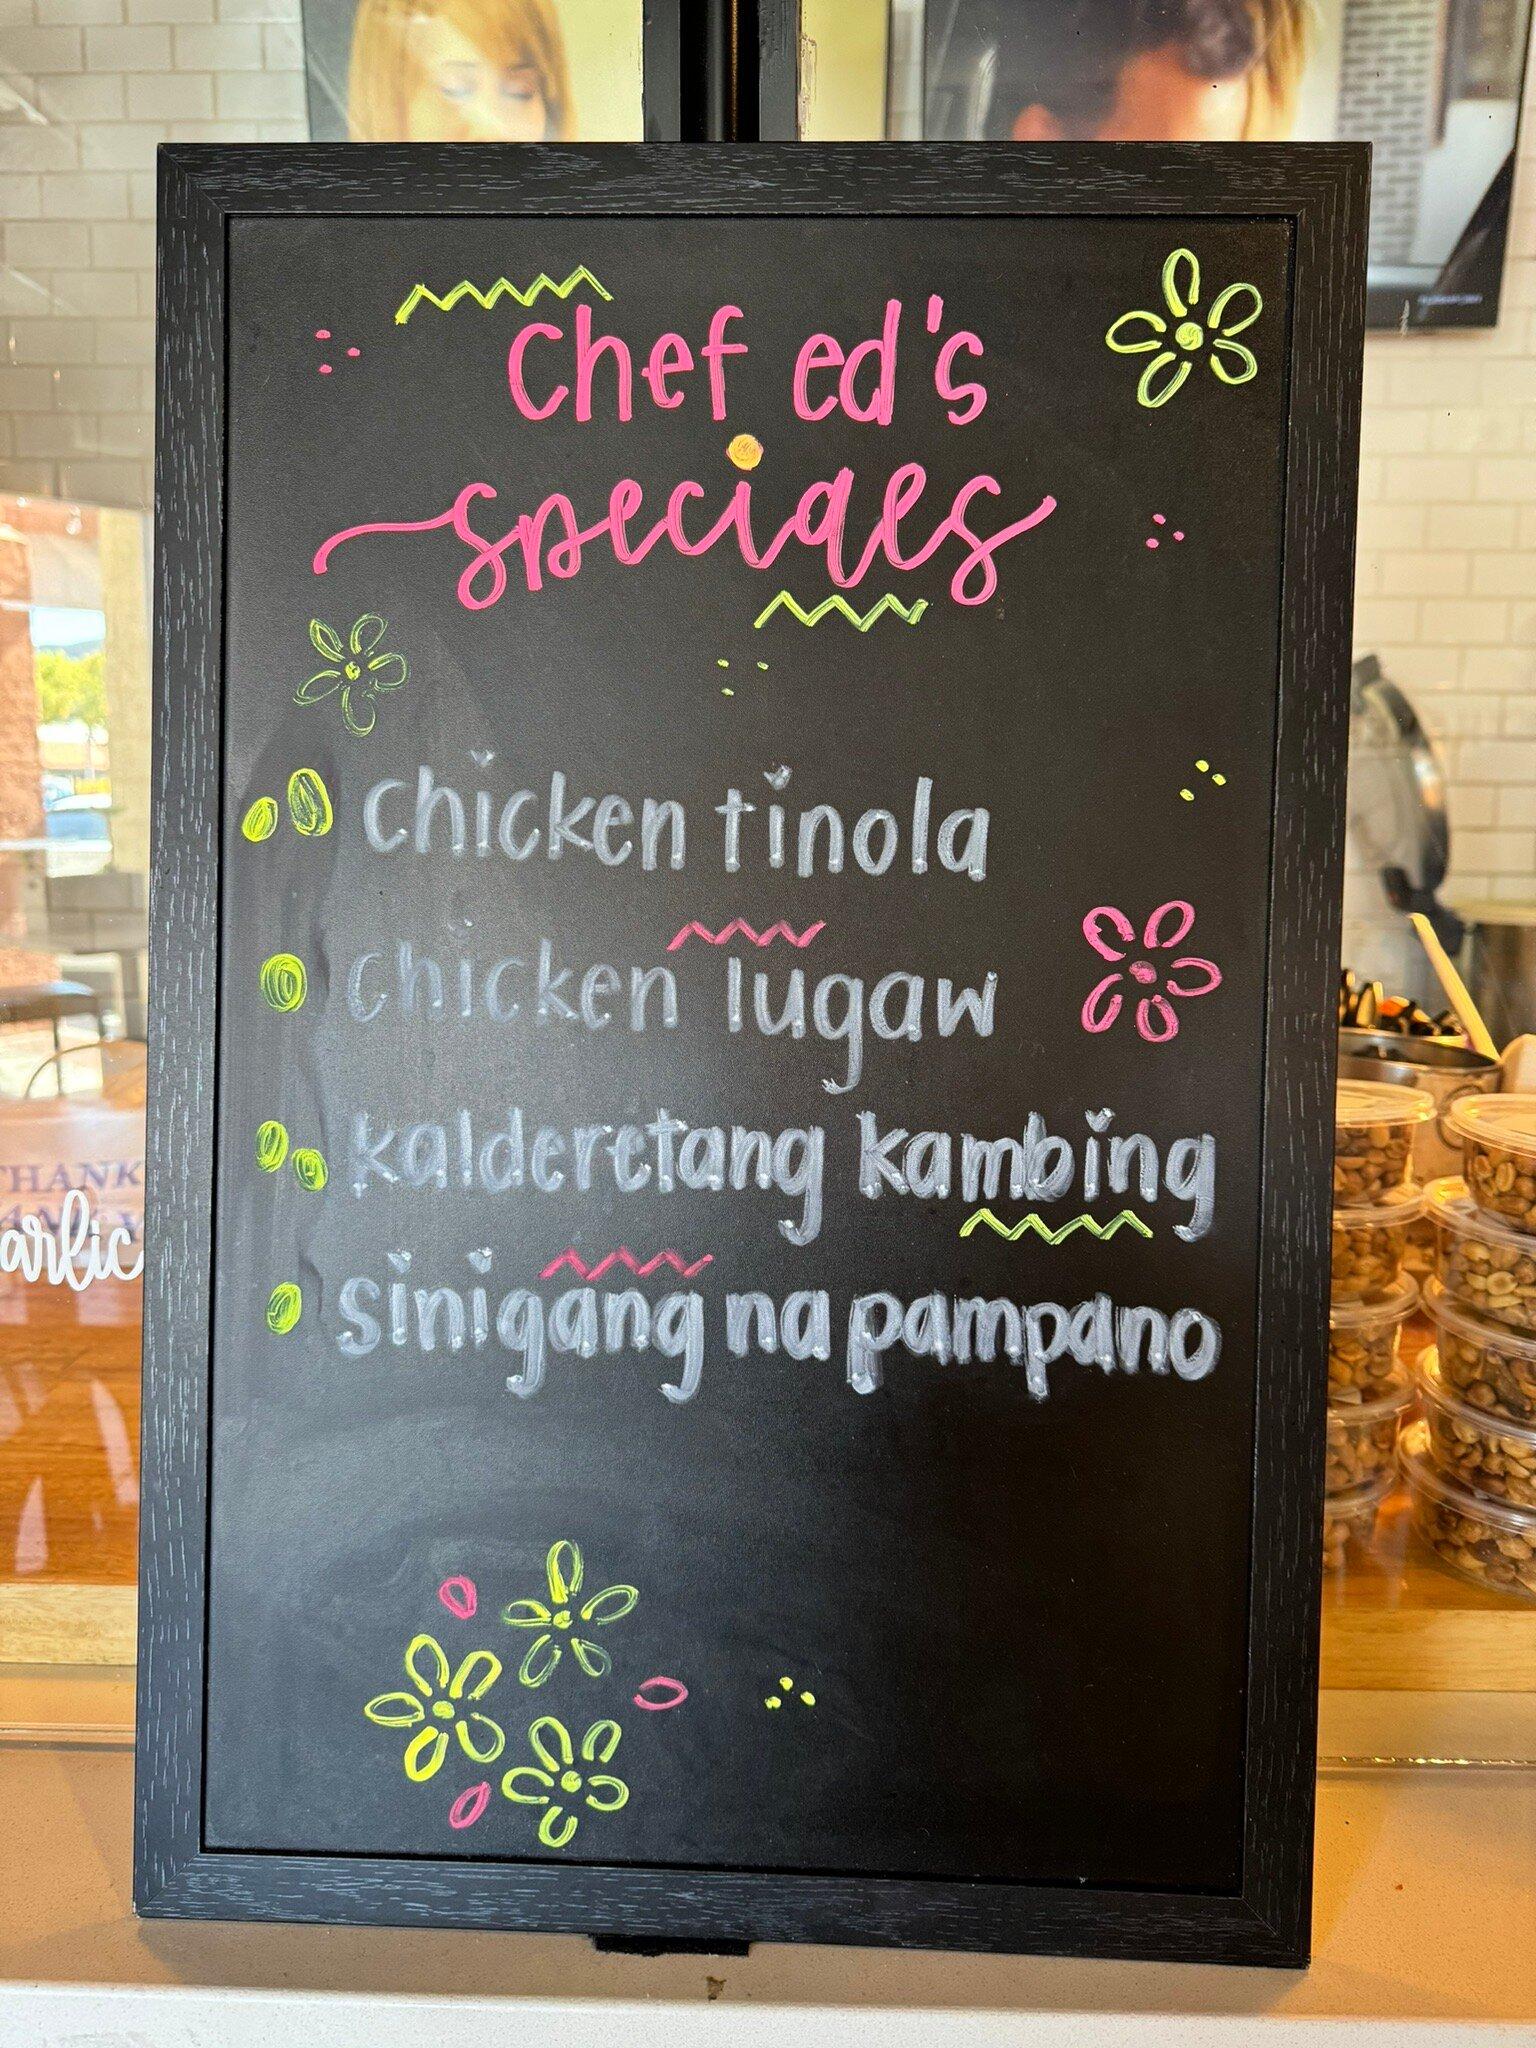 chef ed's
specials
chicken tinola
chicken lugaw
kalderetang kambing
sinigang na pampano
THANK
arlic